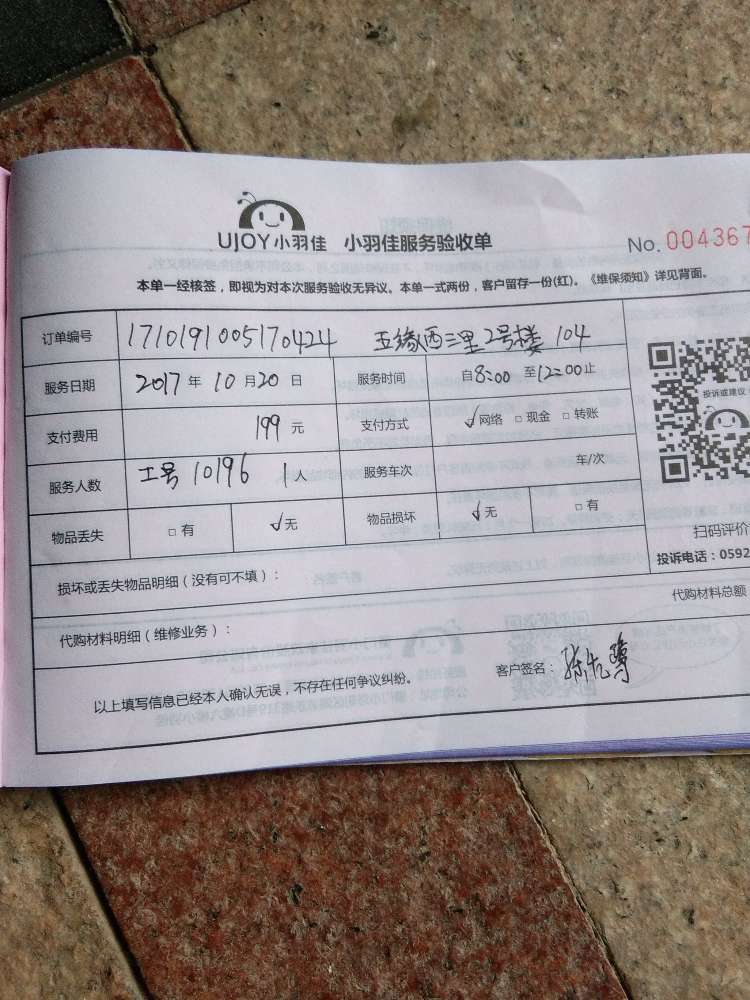 UJOY小羽佳 小羽佳服务验收单 No.004367
本单一经核签，即视为对本次服务验收无异议。本单一式两份，客户留存一份(红)。《维保须知》详见背面。
订单编号 1710191005170424 五缘西三里2号楼 104
服务日期 2017年10月20日 服务时间 自8:00至12:00止
支付费用 199元 支付方式 √网络 □现金 □转账
服务人数 工号10196 1人 服务车次 车/次
物品丢失 □有 √无 物品损坏 √无 □有
投诉或建议
扫码评价
投诉电话：0592
损坏或丢失物品明细（没有可不填）：
代购材料明细（维修业务）： 代购材料总额
以上填写信息已经本人确认无误，不存在任何争议纠纷。 客户签名：